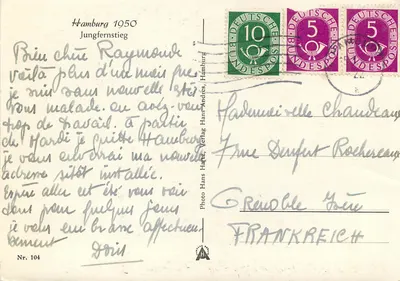 Hamburg 1950
Jungfernstieg
Bien chère Raymonde
voilà plus d'un mois que
je suis sans nouvelle
vous malade. ou avez-vous
trop de travail. à partir
de Mardi je quitte Hambourg
je vous enverrai ma nouvelle
adresse sitôt installée.
Espère aller cet été vous voir
sans pour quelques jours
je vous embrasse affectueu-
sement
Doris
Nr. 104
Photo Hans Hartz, Verlag Hans Andres, Hamburg
DEUTSCHE BUNDESPOST
10
DEUTSCHE BUNDESPOST
5
DEUTSCHE BUNDESPOST
5
Mademoiselle Chandeaux
7 rue Denfert Rochereau
Grenoble Isère
FRANKREICH